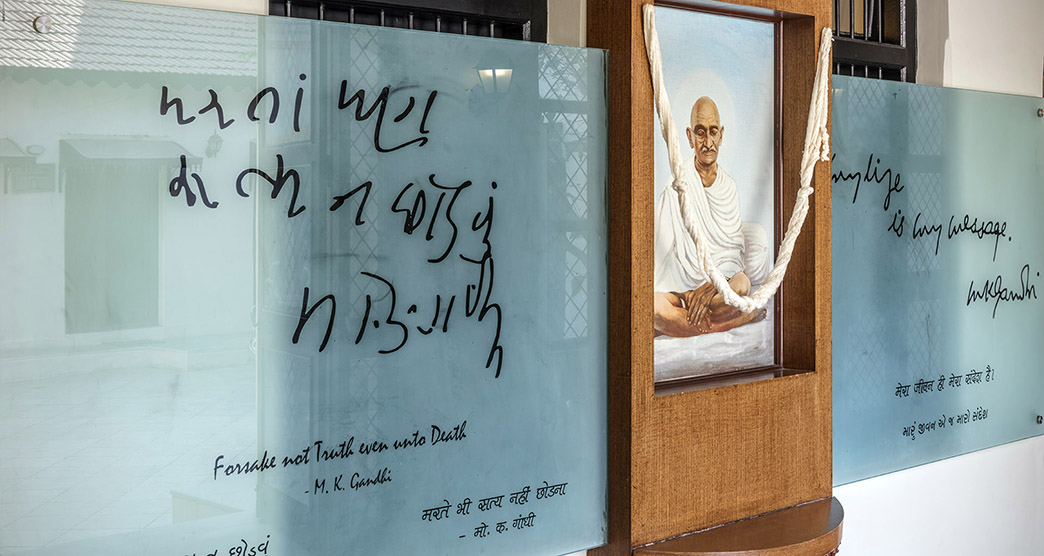 મરતાં પણ
સત્ય ન છોડવું
મો. ક. ગાંધી
Forsake not Truth even unto Death
- M. K. Gandhi
मरते भी सत्य नहीं छोडना
- मो. क. गांधी
છોડવું
my life
is my message.
mkGandhi
मेरा जीवन ही मेरा संदेश है।
મારું જીવન એ જ મારો સંદેશ